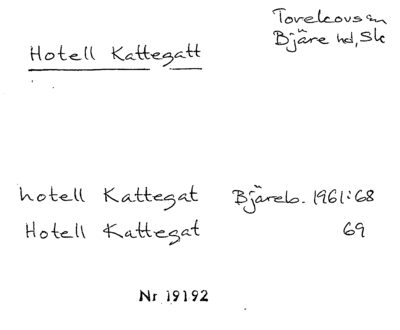 Torekovs sn
Bjäre hd, Sk
Hotell Kattegatt
hotell Kattegat Bjäreb. 1961:68
Hotell Kattegat 69
Nr 19192